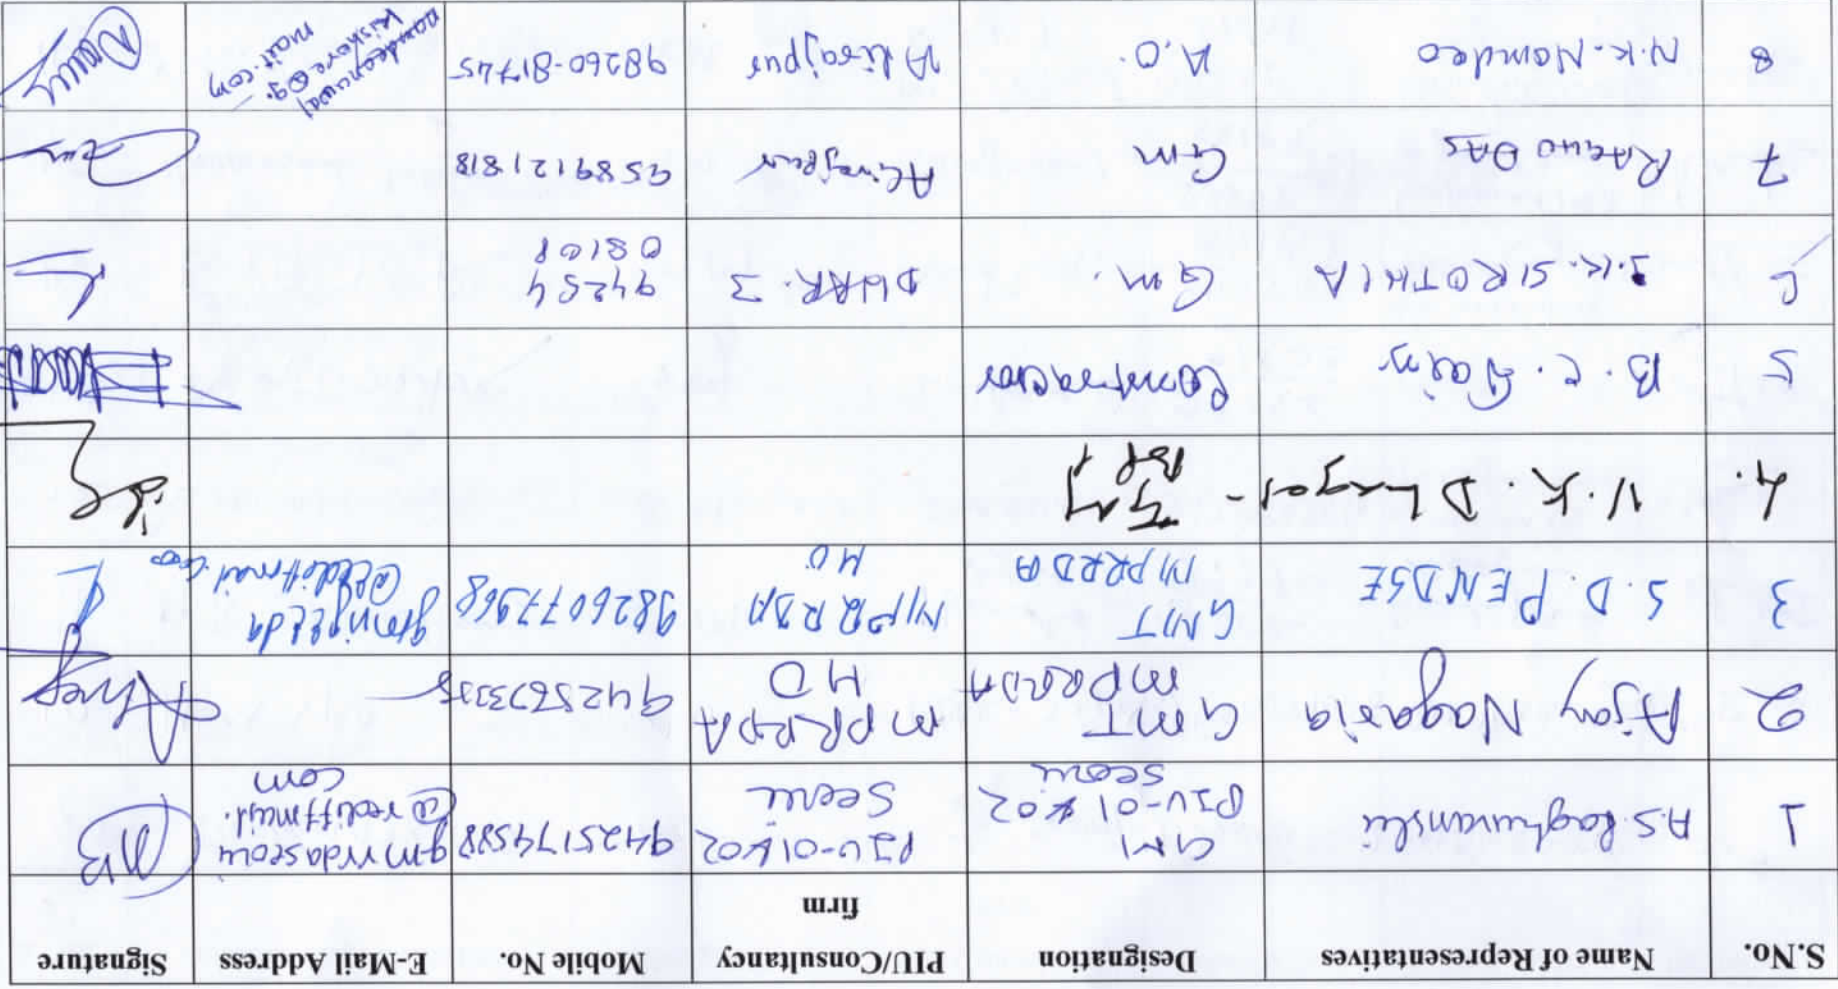 S.No. Name of Representatives Designation PIU/Consultancy firm Mobile No. E-Mail Address Signature
1 A.S. Raghuvanshi GM PIU-01 & 02 Seoni PIU-01 & 02 Seoni 9425174588 gmrrdaseoni @rediffmail.com
2 Ajay Nagaria GMT MPRRDA MPRRDA HO 9425673335
3 S.D. PENDSE GMT MPRRDA MPRRDA HO 9826077968
4. V.K. Dhagat
5 B.C. Jain Contractor
6 J.K. SIROTHIA Gm. DHAR.3 94254 08108
7 RAGHU DAS Gm Alirajpur 9589121818
8 N.K. Namdeo A.O. Alirajpur 98260-81745